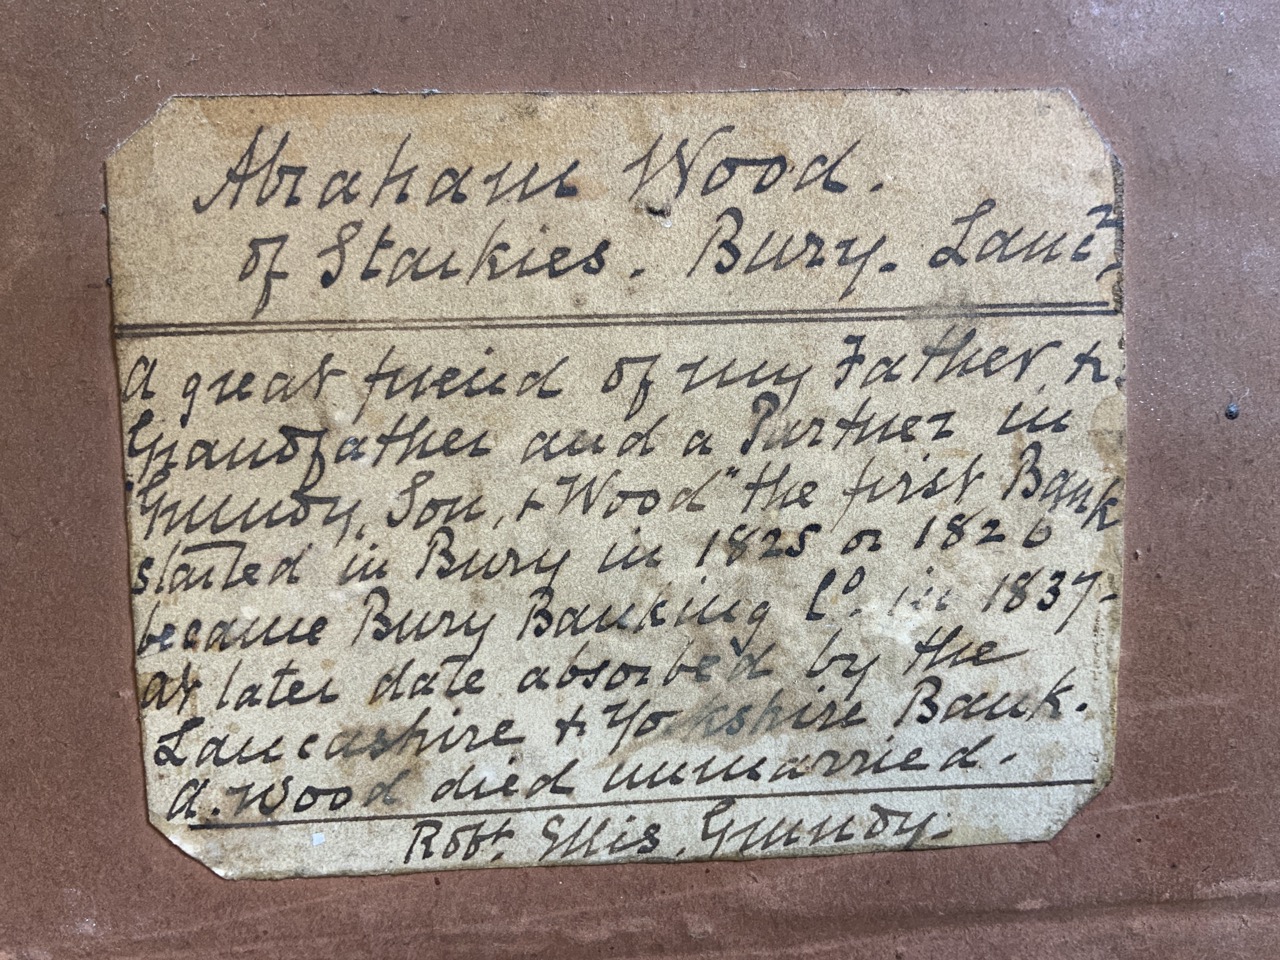 Abraham Wood.
of Starkies. Bury. Lancr.
a great friend of my Father, &
Grandfather and a Partner in
"Grundy, Son, & Wood" the first Bank
started in Bury in 1825 or 1826
became Bury Banking Co. in 1837-
at later date absorbe'd by the
Lancashire & Yorkshire Bank.
A. Wood died unmarried.
Robt. Ellis. Grundy.